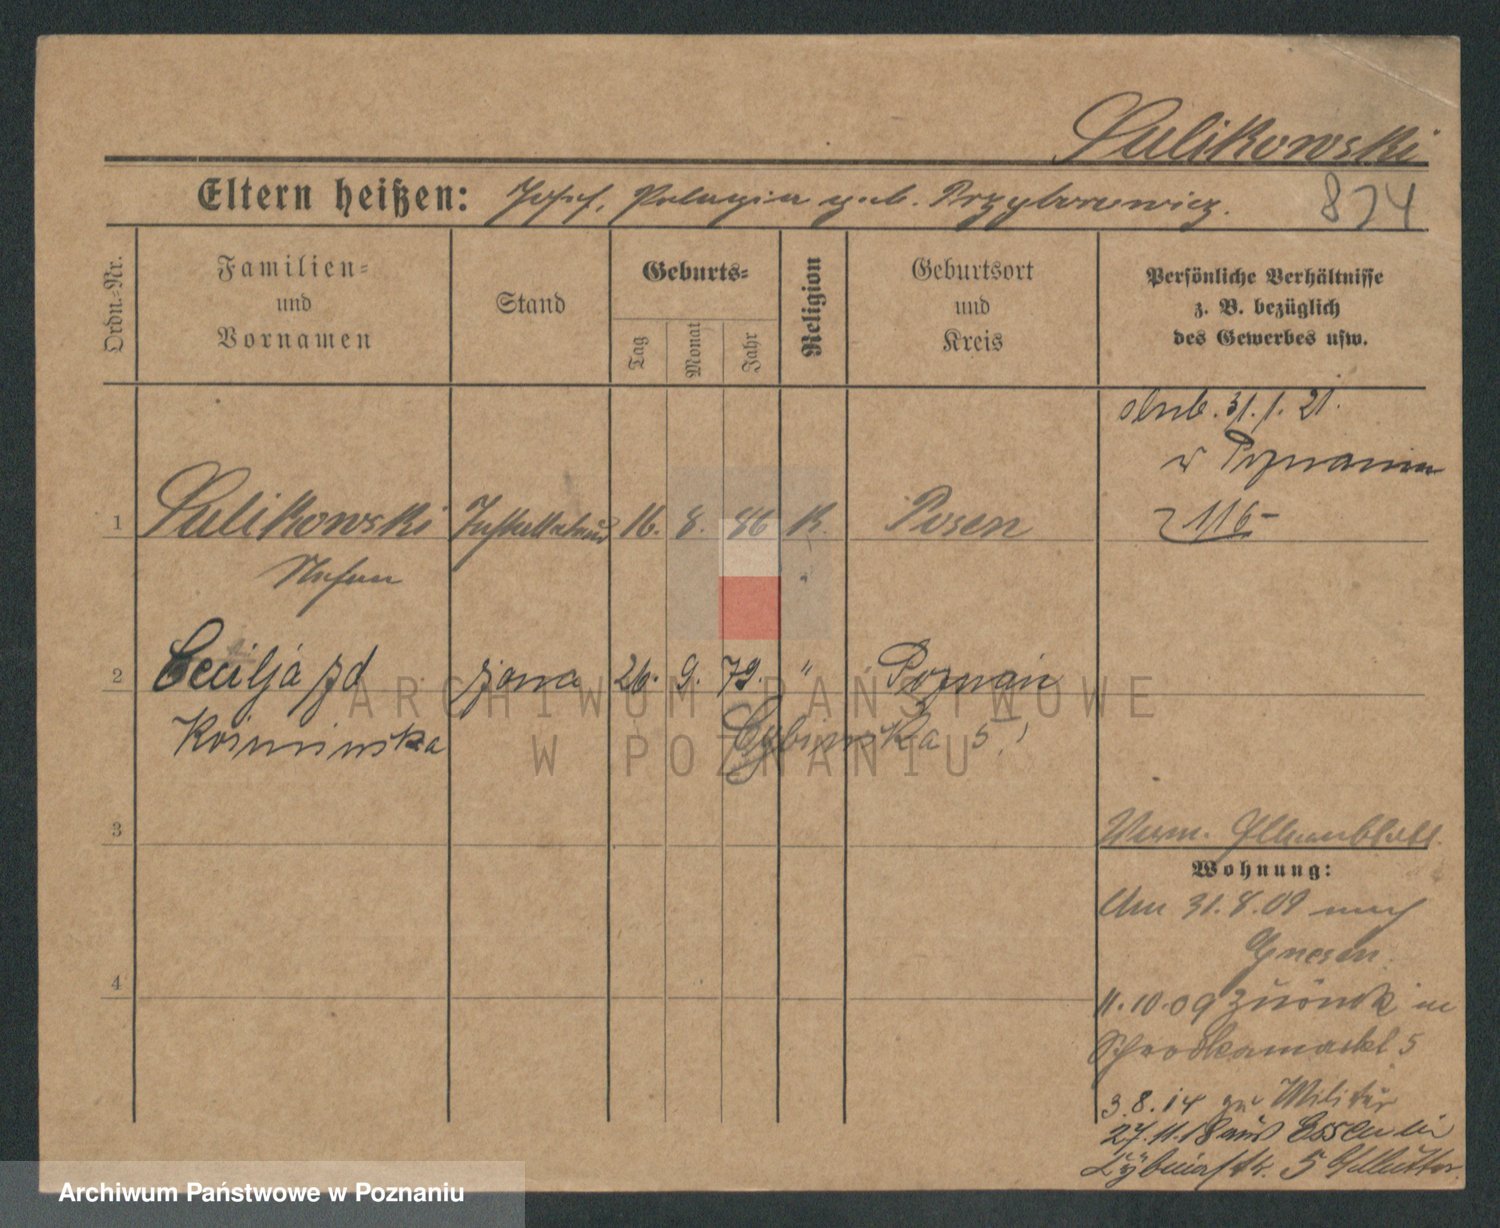 Sulikowski
Eltern heißen: Josef, Pelagia geb. Przyborowicz.
874
Ordn.-Nr.
Familien-
und
Vornamen
Stand
Geburts-
Tag
Monat
Jahr
Religion
Geburtsort
und
Kreis
Persönliche Verhältnisse
z. B. bezüglich
des Gewerbes usw.
31. 1. 21.
w Poznaniu
116
1 Sulikowski 16. 8. 86 K. Posen
Stefan
2 Cecilja zd żona 26. 9. 79. " Poznań
Kośminska Cybinska 5
3
Wohnung:
Am 31.8.09 nach
Gnesen
4
11.10.09 zurück in
Schrodkamarkt 5
3.8.14 zu Militär
27.11.18 aus Essen in
Zybinastr. 5 b/Mutter
ARCHIWUM PAŃSTWOWE
W POZNANIU
Archiwum Państwowe w Poznaniu